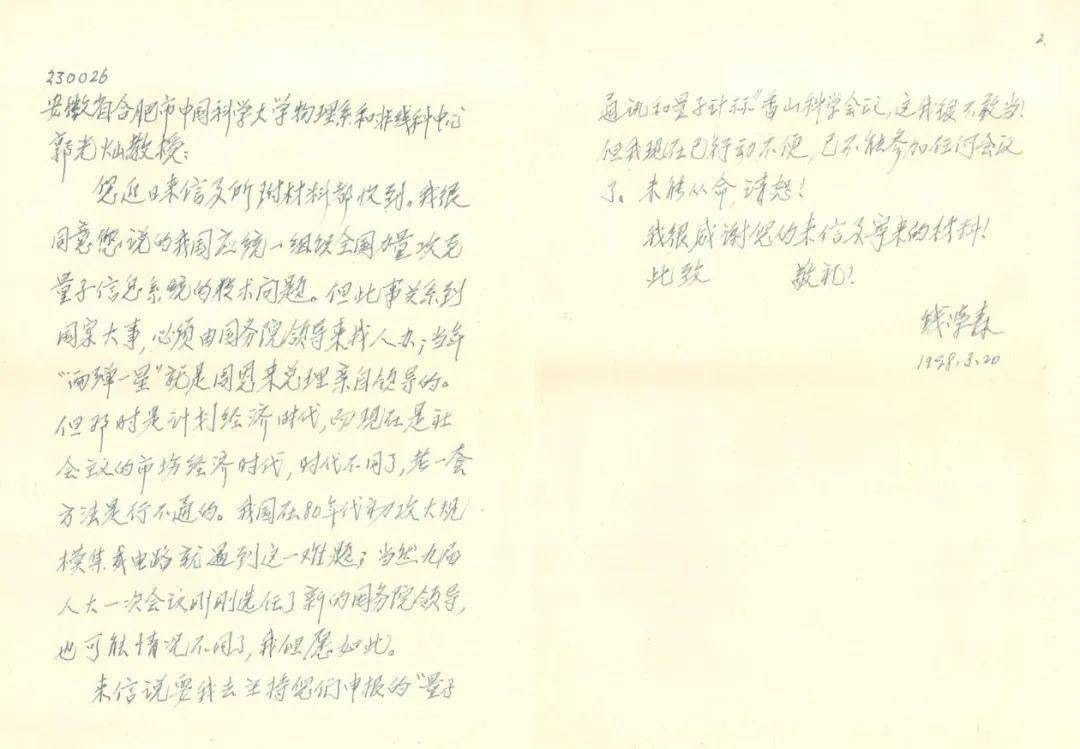 230026
安徽省合肥市中国科学大学物理系和非线科中心
郭光灿教授:
您近日来信及所附材料都收到。我很
同意您说的我国应统一组织全国力量攻克
量子信息系统的技术问题。但此事关系到
国家大事,必须由国务院领导来找人办;当年
“两弹一星”就是周恩来总理亲自领导的。
但那时是计划经济时代,而现在是社
会主义的市场经济时代,时代不同了,老一套
方法是行不通的。我国在80年代初攻大规
模集成电路就遇到这一难题;当然九届
人大一次会议刚刚选任了新的国务院领导,
也可能情况不同了,我但愿如此。
来信说要我去主持您们申报的“量子
2.
通讯和量子计标”香山科学会议,这我很不敢当!
但我现在已行动不便,已不能参加任何会议
了。未能从命,请恕!
我很感谢您的来信及寄来的材料!
此致 敬礼!
钱学森
1998.3.20